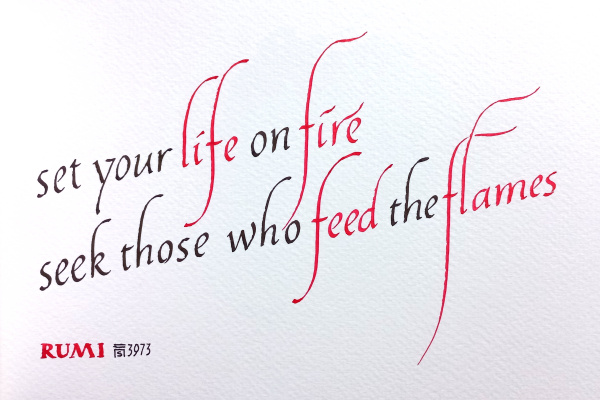 set your life on fire
seek those who feed the flames
RUMI 3973